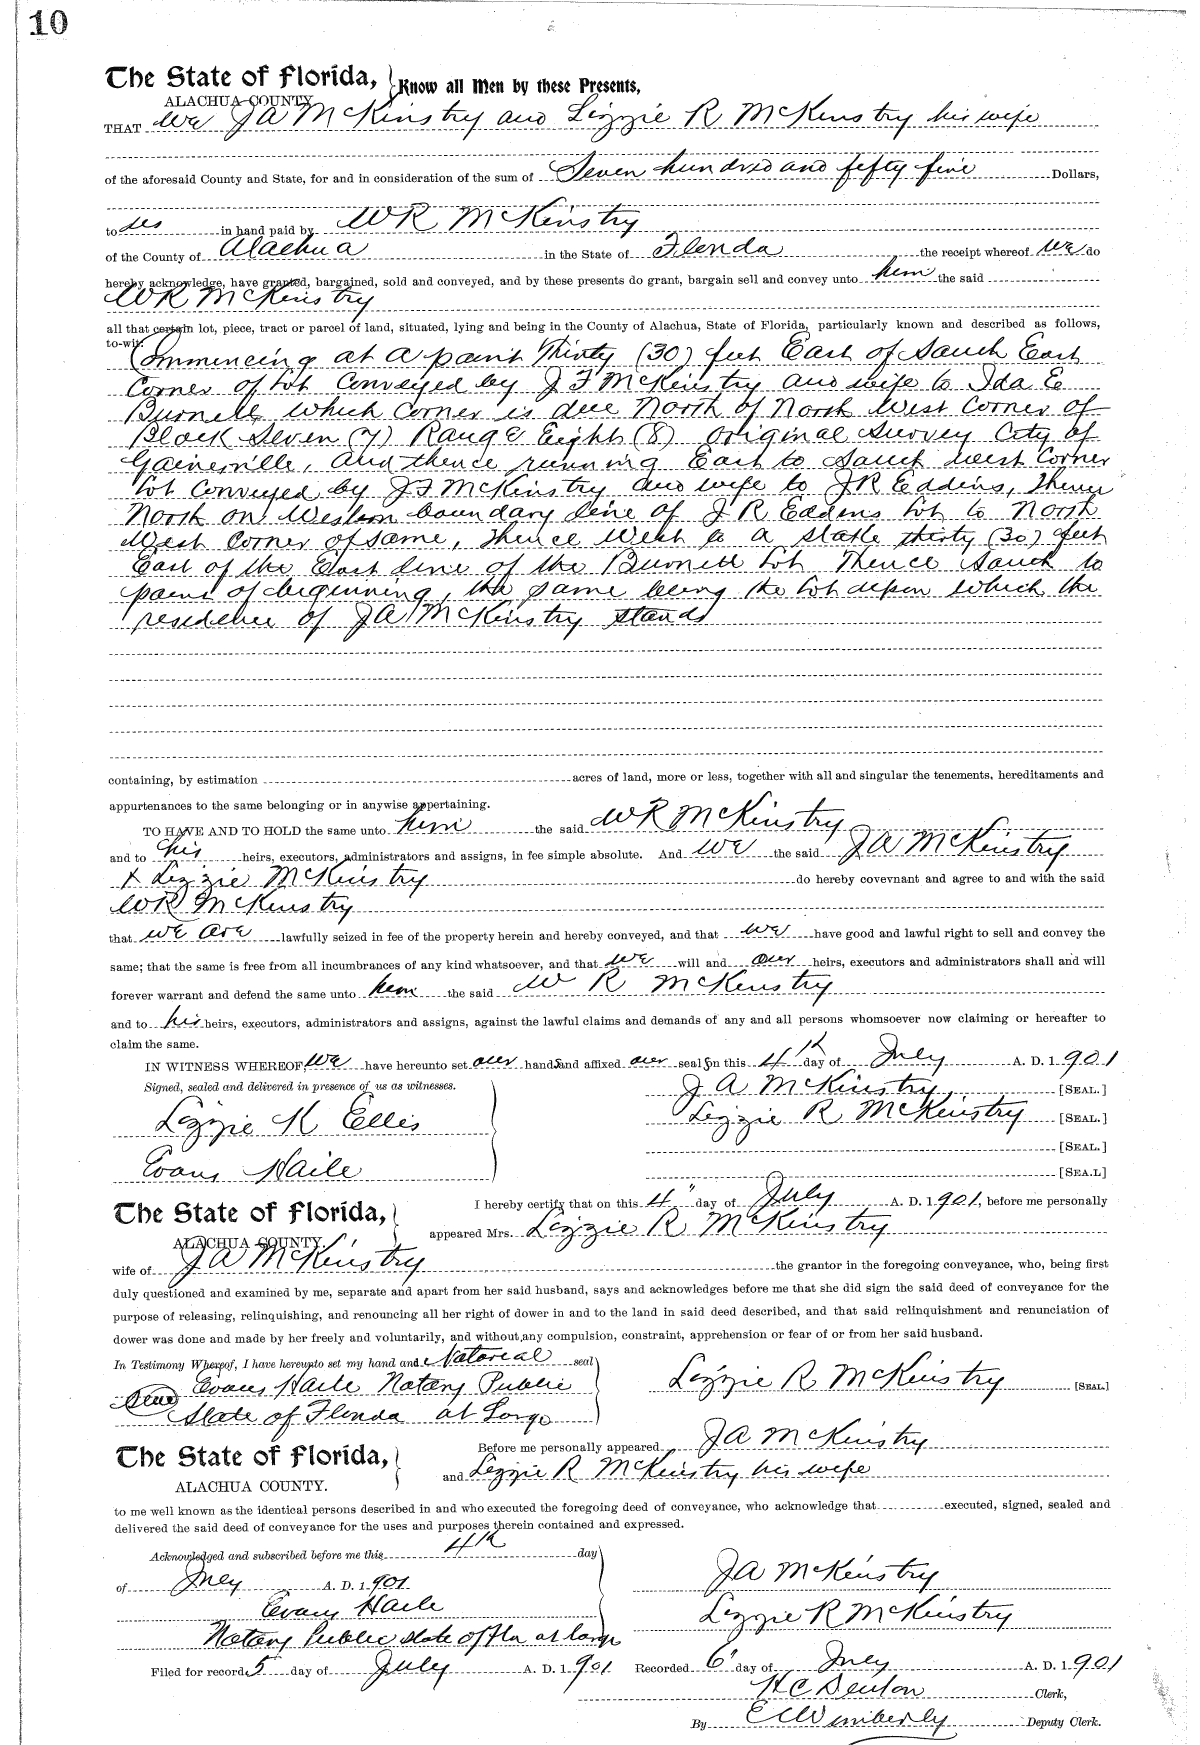 10
The State of Florida, } Know all Men by these Presents,
ALACHUA COUNTY
THAT We J A McKinstry and Lizzie R McKinstry his wife
of the aforesaid County and State, for and in consideration of the sum of Seven hundred and fifty five Dollars,
to us in hand paid by W R McKinstry
of the County of Alachua in the State of Florida the receipt whereof we do
hereby acknowledge, have granted, bargained, sold and conveyed, and by these presents do grant, bargain sell and convey unto him the said
W R McKinstry
all that certain lot, piece, tract or parcel of land, situated, lying and being in the County of Alachua, State of Florida, particularly known and described as follows,
to-wit:
Commencing at a point Thirty (30) feet East of South East
Corner of Lot Conveyed by J F McKinstry and wife to Ida E
Burnett, which corner is due North of North West Corner of
Block Seven (7) Range Eight (8) original Survey City of
Gainesville, and thence running East to South west Corner
Lot Conveyed by J F McKinstry and wife to J R Eddins, Thence
North on Western boundary line of J R Eddins Lot to North
West Corner of same, Thence West to a stake thirty (30) feet
East of the East line of the Burnett Lot Thence South to
point of beginning, the same being the lot upon which the
residence of J A McKinstry stands
containing, by estimation acres of land, more or less, together with all and singular the tenements, hereditaments and
appurtenances to the same belonging or in anywise appertaining.
TO HAVE AND TO HOLD the same unto him the said W R McKinstry
and to his heirs, executors, administrators and assigns, in fee simple absolute. And we the said J A McKinstry
+ Lizzie McKinstry do hereby covevnant and agree to and with the said
W R McKinstry
that we are lawfully seized in fee of the property herein and hereby conveyed, and that we have good and lawful right to sell and convey the
same; that the same is free from all incumbrances of any kind whatsoever, and that we will and our heirs, executors and administrators shall and will
forever warrant and defend the same unto him the said W R McKinstry
and to his heirs, executors, administrators and assigns, against the lawful claims and demands of any and all persons whomsoever now claiming or hereafter to
claim the same.
IN WITNESS WHEREOF, we have hereunto set our hands and affixed our seals on this 4th day of July A. D. 1901
Signed, sealed and delivered in presence of us as witnesses. J A McKinstry [SEAL.]
Lizzie K Ellis Lizzie R McKinstry [SEAL.]
[SEAL.]
Evans Haile [SEA.L]
The State of Florida, } I hereby certify that on this 4" day of July A. D. 1901, before me personally
ALACHUA COUNTY. appeared Mrs. Lizzie R McKinstry
wife of J A McKinstry the grantor in the foregoing conveyance, who, being first
duly questioned and examined by me, separate and apart from her said husband, says and acknowledges before me that she did sign the said deed of conveyance for the
purpose of releasing, relinquishing, and renouncing all her right of dower in and to the land in said deed described, and that said relinquishment and renunciation of
dower was done and made by her freely and voluntarily, and without,any compulsion, constraint, apprehension or fear of or from her said husband.
In Testimony Whereof, I have hereunto set my hand and Notarial seal
Seal Evans Haile Notary Public Lizzie R McKinstry [SEAL.]
State of Florida at Large
The State of Florida, } Before me personally appeared J A McKinstry
ALACHUA COUNTY. and Lizzie R McKinstry his wife
to me well known as the identical persons described in and who executed the foregoing deed of conveyance, who acknowledge that executed, signed, sealed and
delivered the said deed of conveyance for the uses and purposes therein contained and expressed.
Acknowledged and subscribed before me this 4th day
of July A. D. 1901 J A McKinstry
Evans Haile Lizzie R McKinstry
Notary Public State of Fla at large
Filed for record 5 day of July A. D. 1901 Recorded 6" day of July A. D. 1901
H C Denton Clerk,
By E C Wimberly Deputy Clerk.